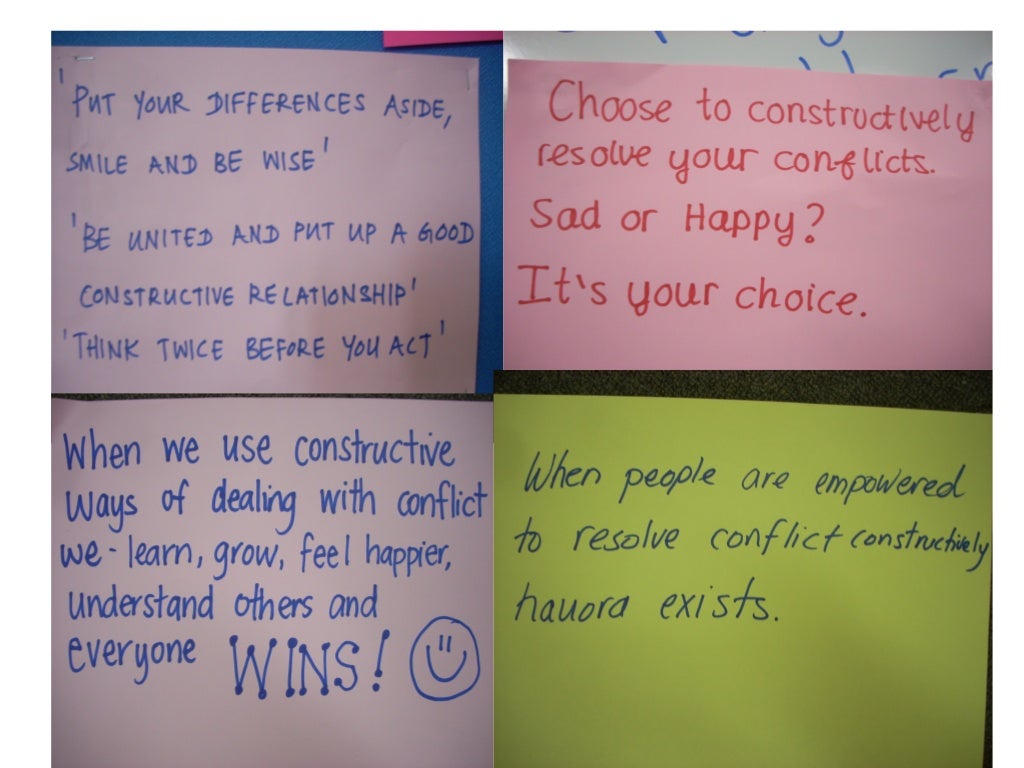 'PUT YOUR DIFFERENCES ASIDE,
SMILE AND BE WISE'
'BE UNITED AND PUT UP A GOOD
CONSTRUCTIVE RELATIONSHIP'
'THINK TWICE BEFORE YOU ACT'
Choose to constructively
resolve your conflicts.
Sad or Happy?
It's your choice.
When we use constructive
ways of dealing with conflict
we - learn, grow, feel happier,
understand others and
everyone WINS!
When people are empowered
to resolve conflict constructively
hauora exists.